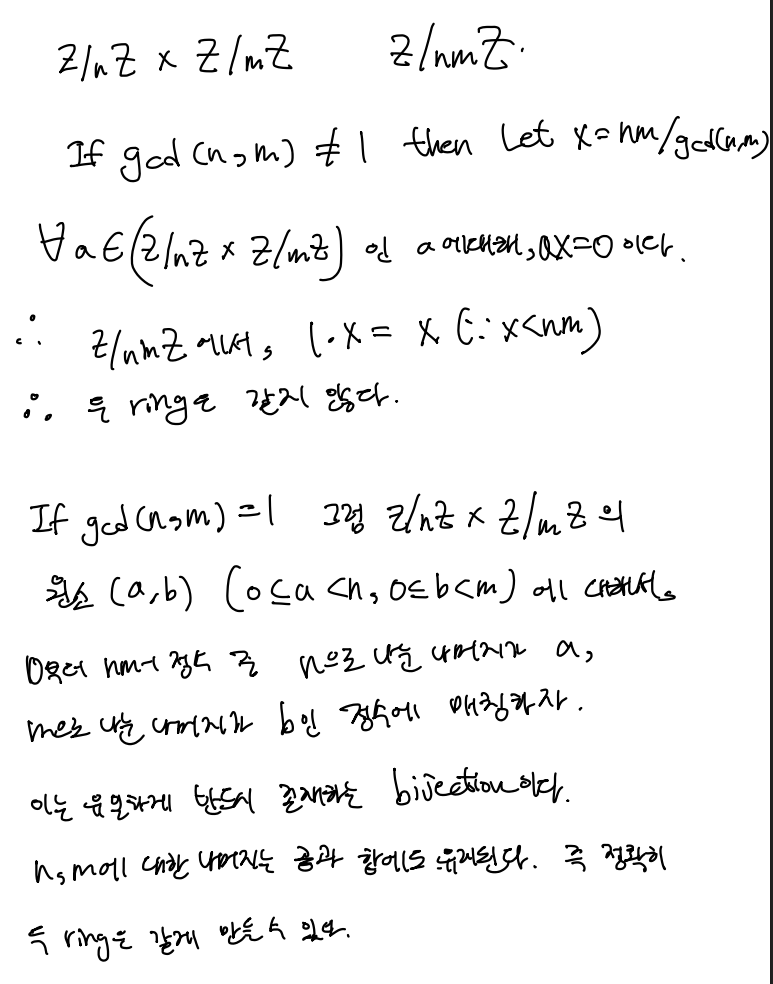 Z/nZ × Z/mZ Z/nmZ.
If gcd(n,m) ≠ 1 then let x=nm/gcd(n,m)
∀a∈(Z/nZ × Z/mZ) 인 a에대해, ax=0 이다.
∴ Z/nmZ 에서, 1·x = x (∵ x<nm)
∴ 두 ring은 같지 않다.
If gcd(n,m)=1 그럼 Z/nZ × Z/mZ 의
원소 (a,b) (0≤a<n, 0≤b<m) 에 대해서,
0부터 nm-1 정수 중 n으로 나눈 나머지가 a,
m으로 나눈 나머지가 b인 정수에 매칭하자.
이는 유일하게 반드시 존재하는 bijection이다.
n,m에 대한 나머지는 곱과 합에도 유지된다. 즉 정확히
두 ring은 같게 만들 수 있다.